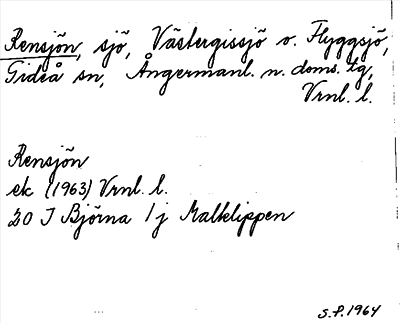 Rensjön, sjö, Västergissjö o. Flyggsjö,
Gideå sn, Ångermanl. n. doms. tg,
Vrnl. l.
Rensjön
ek (1963) Vrnl. l.
20 I Björna 1 j Maltklippen
S.P. 1964